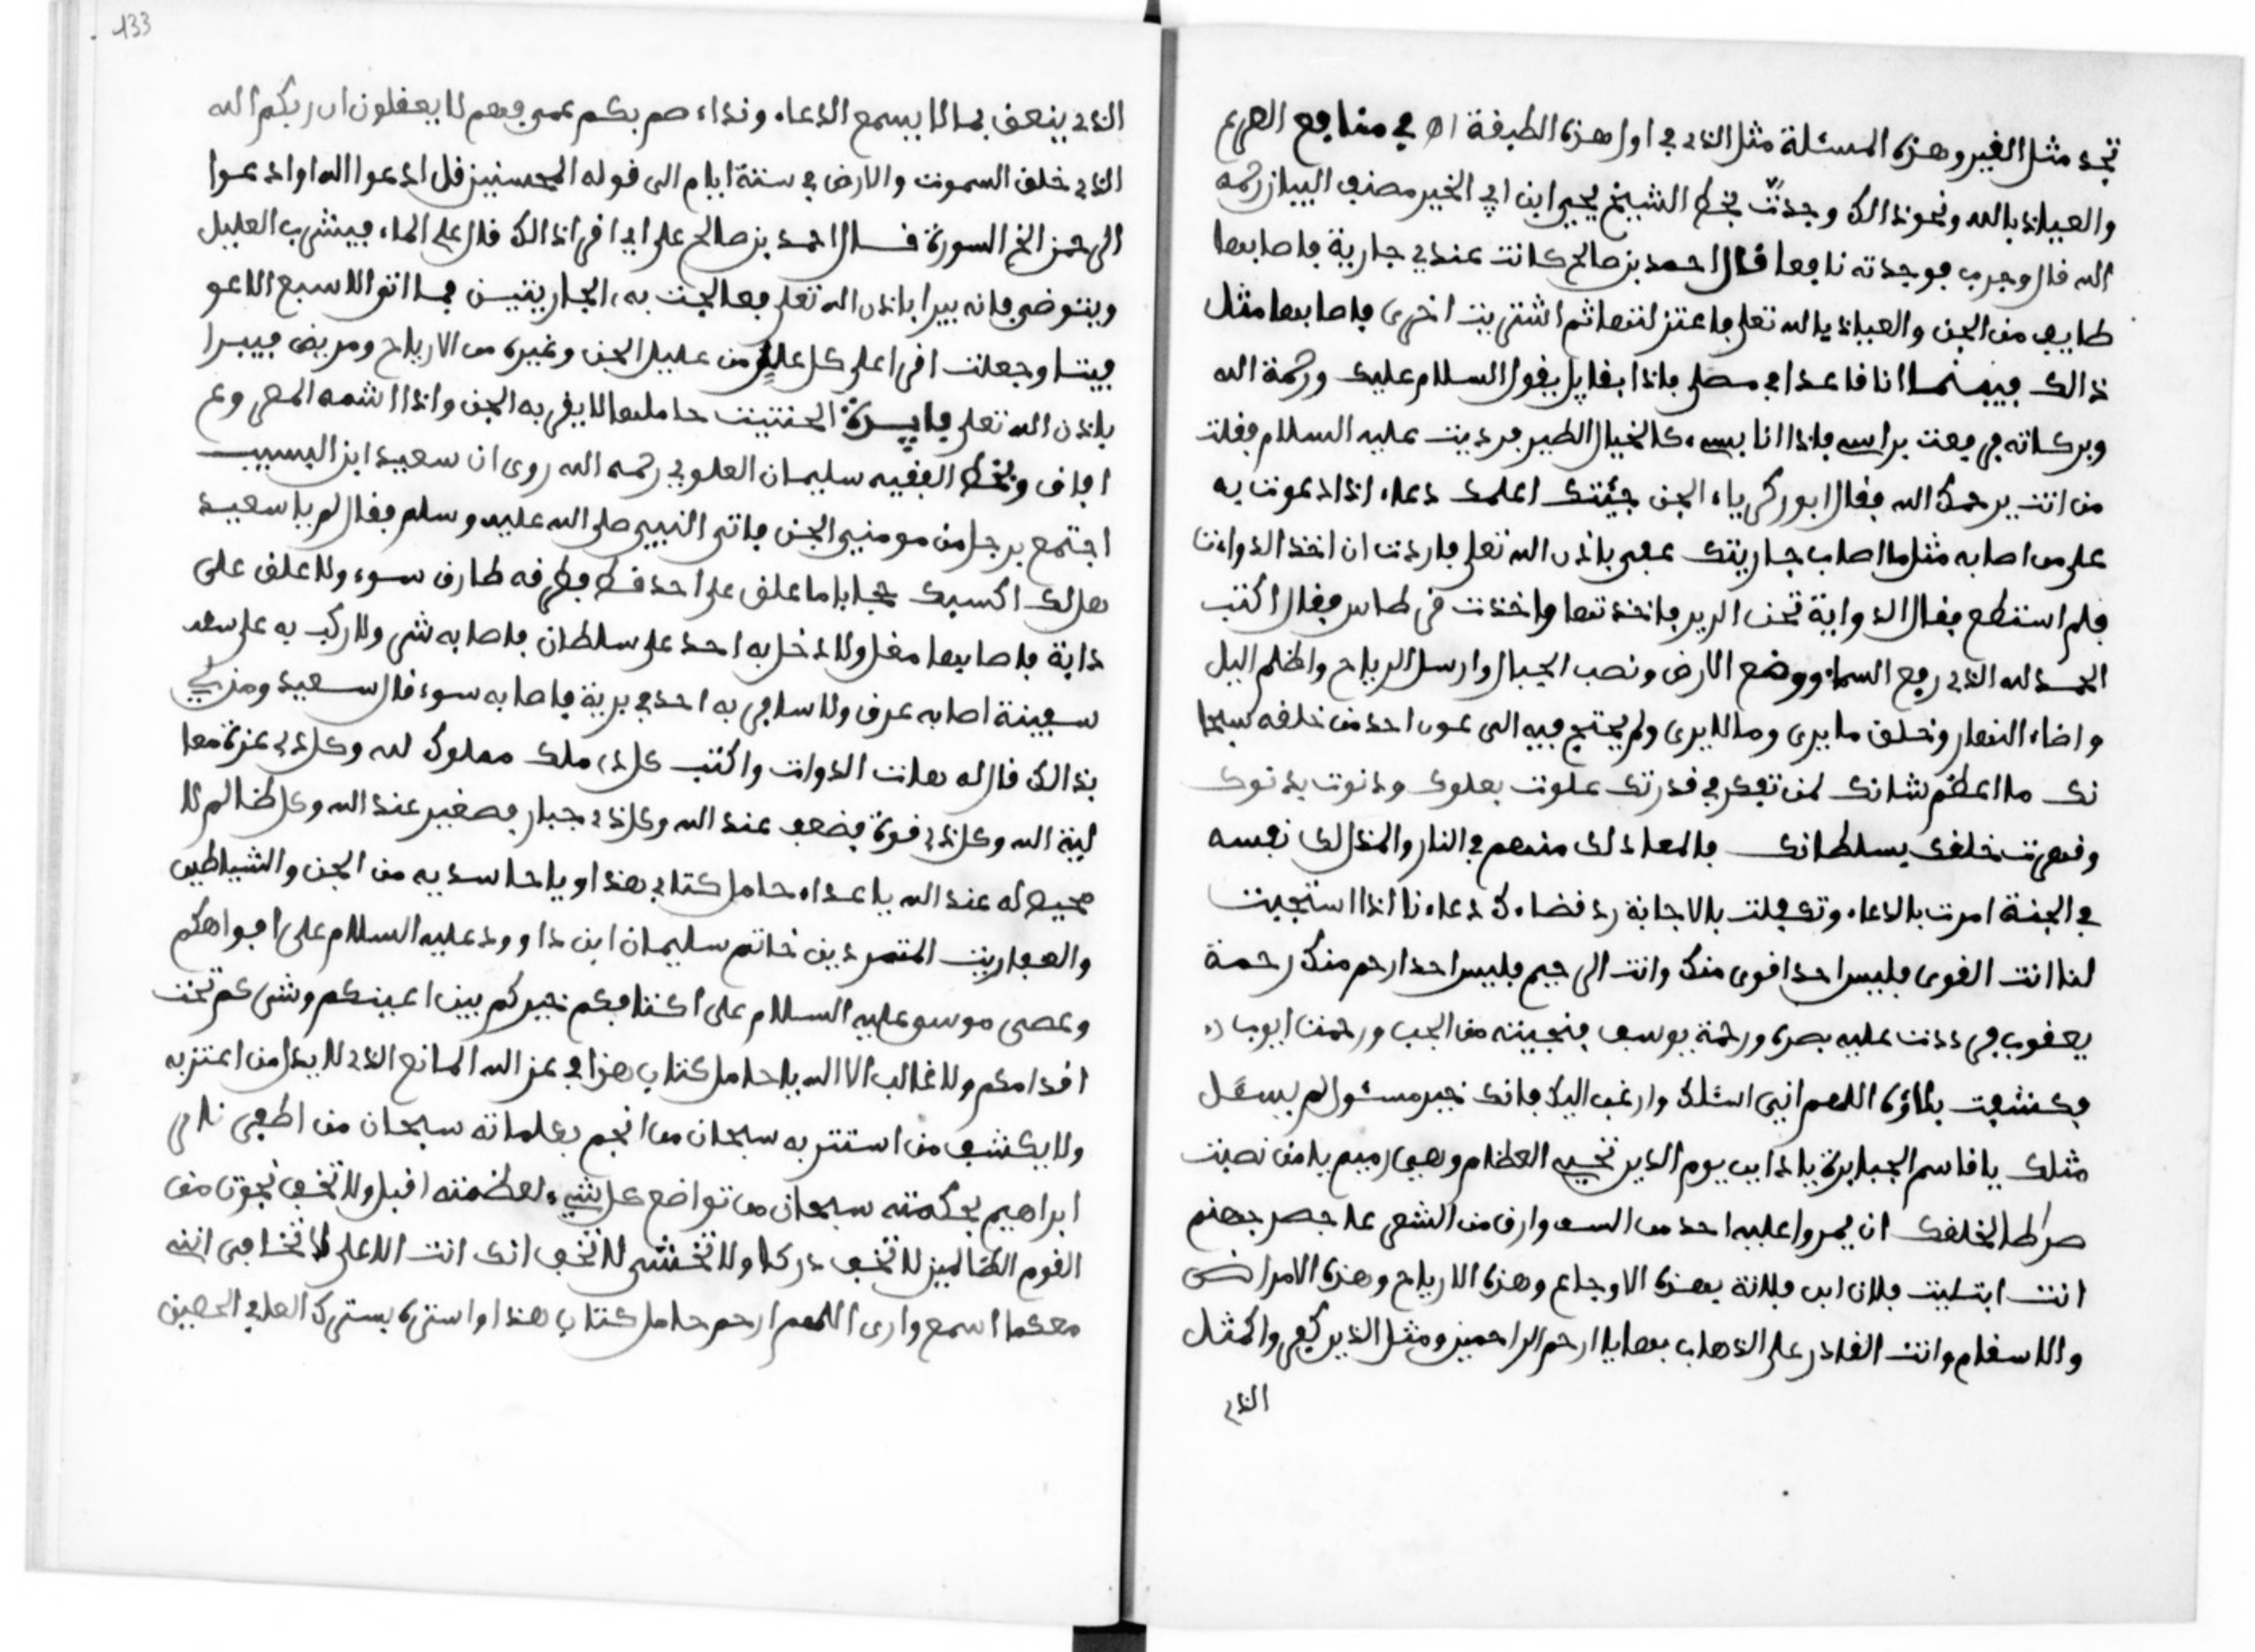 تجد مثل الغير وهذه المسئلة مثل الذي في اول هذه الطبقة اه في منافع الصرع
والعياذ بالله ونحو ذالك وجدت بخط الشيخ يحيى ابن ابي الخير مصنف البيان رحمه
الله قال وجرب فوجدته نافعا قال احمد بن صالح كانت عندي جارية فاصابها
طايف من الجن والعياذ بالله تعلى فاعتزلتها ثم اشتريت اخرى فاصابها مثل
ذالك فبينما انا قاعدا في مصلى فاذا بقايل يقول السلام عليك ورحمة الله
وبركاته فرفعت براسه فاذا انا بشيء كالخيال الطير فرديت عليه السلام فقلت
من انت يرحمك الله فقال ابو زكرياء الجن جئتك اعلمك دعاء اذا دعوت به
على من اصابه مثل ما اصاب جاريتك عفى باذن الله تعلى فاردت ان اخذ الدوات
فلم استطع فقال الدواية تحت الدير فاخذتها واخذت قرطاس فقال اكتب
الحمد لله الذي رفع السماء ووضع الارض ونصب الجبال وارسل الرياح واظلم اليل
واضاء النهار وخلق ما يرى وما لا يرى ولم يحتج فيه الى عون احد من خلقه سبحا
نك ما اعظم شانك لمن تفكر في قدرتك علوت بعلوك ودنوت بدنوك
وقهرت خلقك بسلطانك فالمعاد لك منهم في النار والمذلك نفسه
في الجنة امرت بالدعاء وتكفلت بالاجابة رد قضاءك دعاءنا اذا استجيت
لنا انت القوى فليس احد اقوى منك وانت الرحيم فليس احد ارحم منك رحمة
يعقوب فرددت عليه بصره ورحمة يوسف فنجيته من الجب ورحمت ايوب
فكشفت بلاؤه اللهم اني اسئلك وارغب اليك فانك خير مسئول لم يسئل
مثلك يا قاسم الجبابرة يا ذايب يوم الدين تحييه العظام وهي رميم يا من نصبت
صراطا لخلقك ان يمروا عليه احد من السيف وارق من الشعر على جسر جهنم
انت ابتليت فلان ابن فلانة بهذه الاوجاع وهذه الارياح وهذه الامراض
والاسقام وانت القادر على الذهاب بها يا ارحم الراحمين ومثل الذين كفروا كمثل
الذي
133
الذي ينعق بما لا يسمع الدعاء ونداء صم بكم عمي فهم لا يعقلون ان ربكم الله
الذي خلق السموت والارض في ستة ايام الى قوله المحسنين قل ادعوا الله او ادعوا
الرحمن الخ السورة قال احمد بن صالح على اي اقرا ذالك قال على الماء فيشرب العليل
ويتوضى فانه يبرا باذن الله تعلى فعالجت به الجاريتين فما اتوا لا سبع الا عو
فيتا وجعلت اقرا على كل عليل من عليل الجن وغيره من الارياح ومريض فيبرا
باذن الله تعلى فايدة الحنتيت حاملها لا يقربه الجن واذا اشمه المصروع
افاق وبخط الفقيه سليمان العلوي رحمه الله روى ان سعيد ابن المسيب
اجتمع برجل من مومنين الجن فاتى النبي صلى الله عليه وسلم فقال لم يا سعيد
هل لك اكسيك حجابا ما علق على احد قط فطرفه طارق سوء ولا علق على
دابة فاصابها مغل ولا دخل به احد على سلطان فاصابه شي ولا ركب به على سعد
سفينة اصابه غرق ولا سافر به احد في برية فاصابه سوء قال سعيد ومن لي
بذالك قال له هات الدوات واكتب كل ذي ملك مملوك لله وكل ذي عزة معا
لبة الله وكل ذي قوة فضعف عند الله وكل ذي جبار فصغير عند الله وكل ظالم لا
محيص له عند الله يا عداء حامل كتابي هذا ويا حاسديه من الجن والشياطين
والعفاريت المتمردين خاتم سليمان ابن داوود عليه السلام على افواهكم
وعصى موسى عليه السلام على اكتافكم خيركم بين اعينكم وشركم تحت
اقدامكم ولا غالب الا الله يا حامل كتابي هذا في عز الله المانع الذي لا يذل من اعتز به
ولا يكشف من استتر به سبحان من الجم بكلماته سبحان من اطفى نار
ابراهيم بحكمته سبحان من تواضع كل شيء لعظمته اقبل ولا تخف نجوت من
القوم الظالمين لا تخف دركا ولا تخشى لا تخف انك انت الاعلى لا تخافى انني
معكما اسمع وارى اللهم ارحم حامل كتابي هذا واستره بسترك العلي الحصين